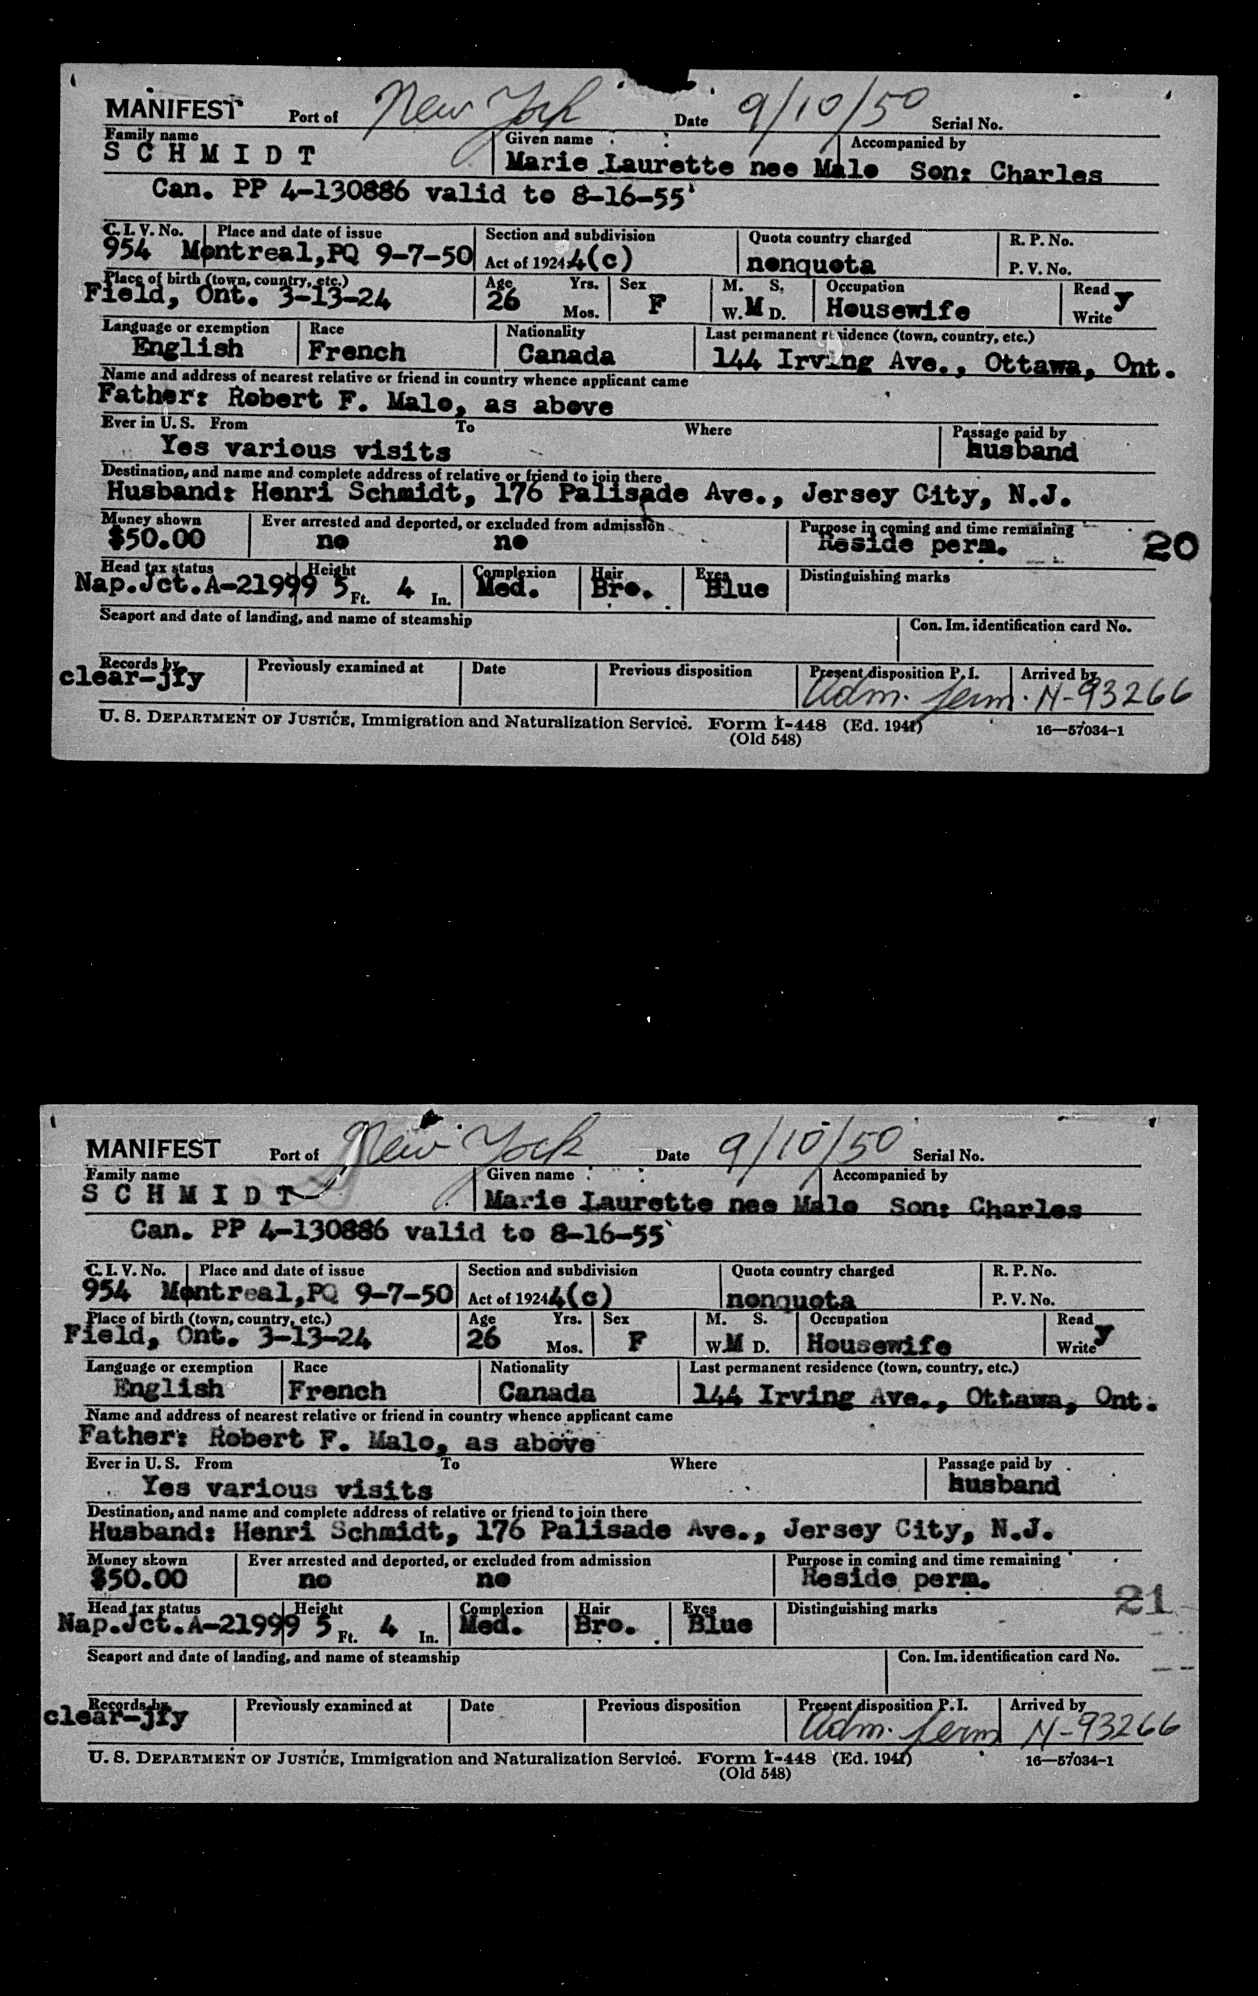 MANIFEST Port of New York Date 9/10/50 Serial No.
Family name Given name Accompanied by
S C H M I D T Marie Laurette nee Malo Son: Charles
Can. PP 4-130886 valid to 8-16-55
C. I. V. No. Place and date of issue Section and subdivision Quota country charged R. P. No.
954 Montreal,PQ 9-7-50 Act of 1924 4(c) nonquota P. V. No.
Place of birth (town, country, etc.) Age Yrs. Sex M. S. Occupation Read
Field, Ont. 3-13-24 26 Mos. F W. M D. Housewife Write y
Language or exemption Race Nationality Last permanent residence (town, country, etc.)
English French Canada 144 Irving Ave., Ottawa, Ont.
Name and address of nearest relative or friend in country whence applicant came
Father: Robert F. Malo, as above
Ever in U. S. From To Where Passage paid by
Yes various visits husband
Destination, and name and complete address of relative or friend to join there
Husband: Henri Schmidt, 176 Palisade Ave., Jersey City, N.J.
Money shown Ever arrested and deported, or excluded from admission Purpose in coming and time remaining
$50.00 no no Reside perm. 20
Head tax status Height Complexion Hair Eyes Distinguishing marks
Nap.Jct.A-21999 5 Ft. 4 In. Med. Bro. Blue
Seaport and date of landing, and name of steamship Con. Im. identification card No.
Records by Previously examined at Date Previous disposition Present disposition P. I. Arrived by
clear-jfy Adm. perm. N-93266
U. S. DEPARTMENT OF JUSTICE, Immigration and Naturalization Service. Form I-448 (Ed. 1941) 16—57034-1
(Old 548)
MANIFEST Port of New York Date 9/10/50 Serial No.
Family name Given name Accompanied by
S C H M I D T Marie Laurette nee Malo Son: Charles
Can. PP 4-130886 valid to 8-16-55
C. I. V. No. Place and date of issue Section and subdivision Quota country charged R. P. No.
954 Montreal,PQ 9-7-50 Act of 1924 4(c) nonquota P. V. No.
Place of birth (town, country, etc.) Age Yrs. Sex M. S. Occupation Read
Field, Ont. 3-13-24 26 Mos. F W. M D. Housewife Write y
Language or exemption Race Nationality Last permanent residence (town, country, etc.)
English French Canada 144 Irving Ave., Ottawa, Ont.
Name and address of nearest relative or friend in country whence applicant came
Father: Robert F. Malo, as above
Ever in U. S. From To Where Passage paid by
Yes various visits husband
Destination, and name and complete address of relative or friend to join there
Husband: Henri Schmidt, 176 Palisade Ave., Jersey City, N.J.
Money shown Ever arrested and deported, or excluded from admission Purpose in coming and time remaining
$50.00 no no Reside perm. 21
Head tax status Height Complexion Hair Eyes Distinguishing marks
Nap.Jct.A-21999 5 Ft. 4 In. Med. Bro. Blue
Seaport and date of landing, and name of steamship Con. Im. identification card No.
Records by Previously examined at Date Previous disposition Present disposition P. I. Arrived by
clear-jfy Adm. perm N-93266
U. S. DEPARTMENT OF JUSTICE, Immigration and Naturalization Service. Form I-448 (Ed. 1941) 16—57034-1
(Old 548)